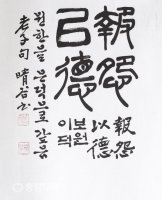 報怨
㠯德
報怨
以德
보원
이덕
원한을 은덕으로 갚음
老子句 晴谷